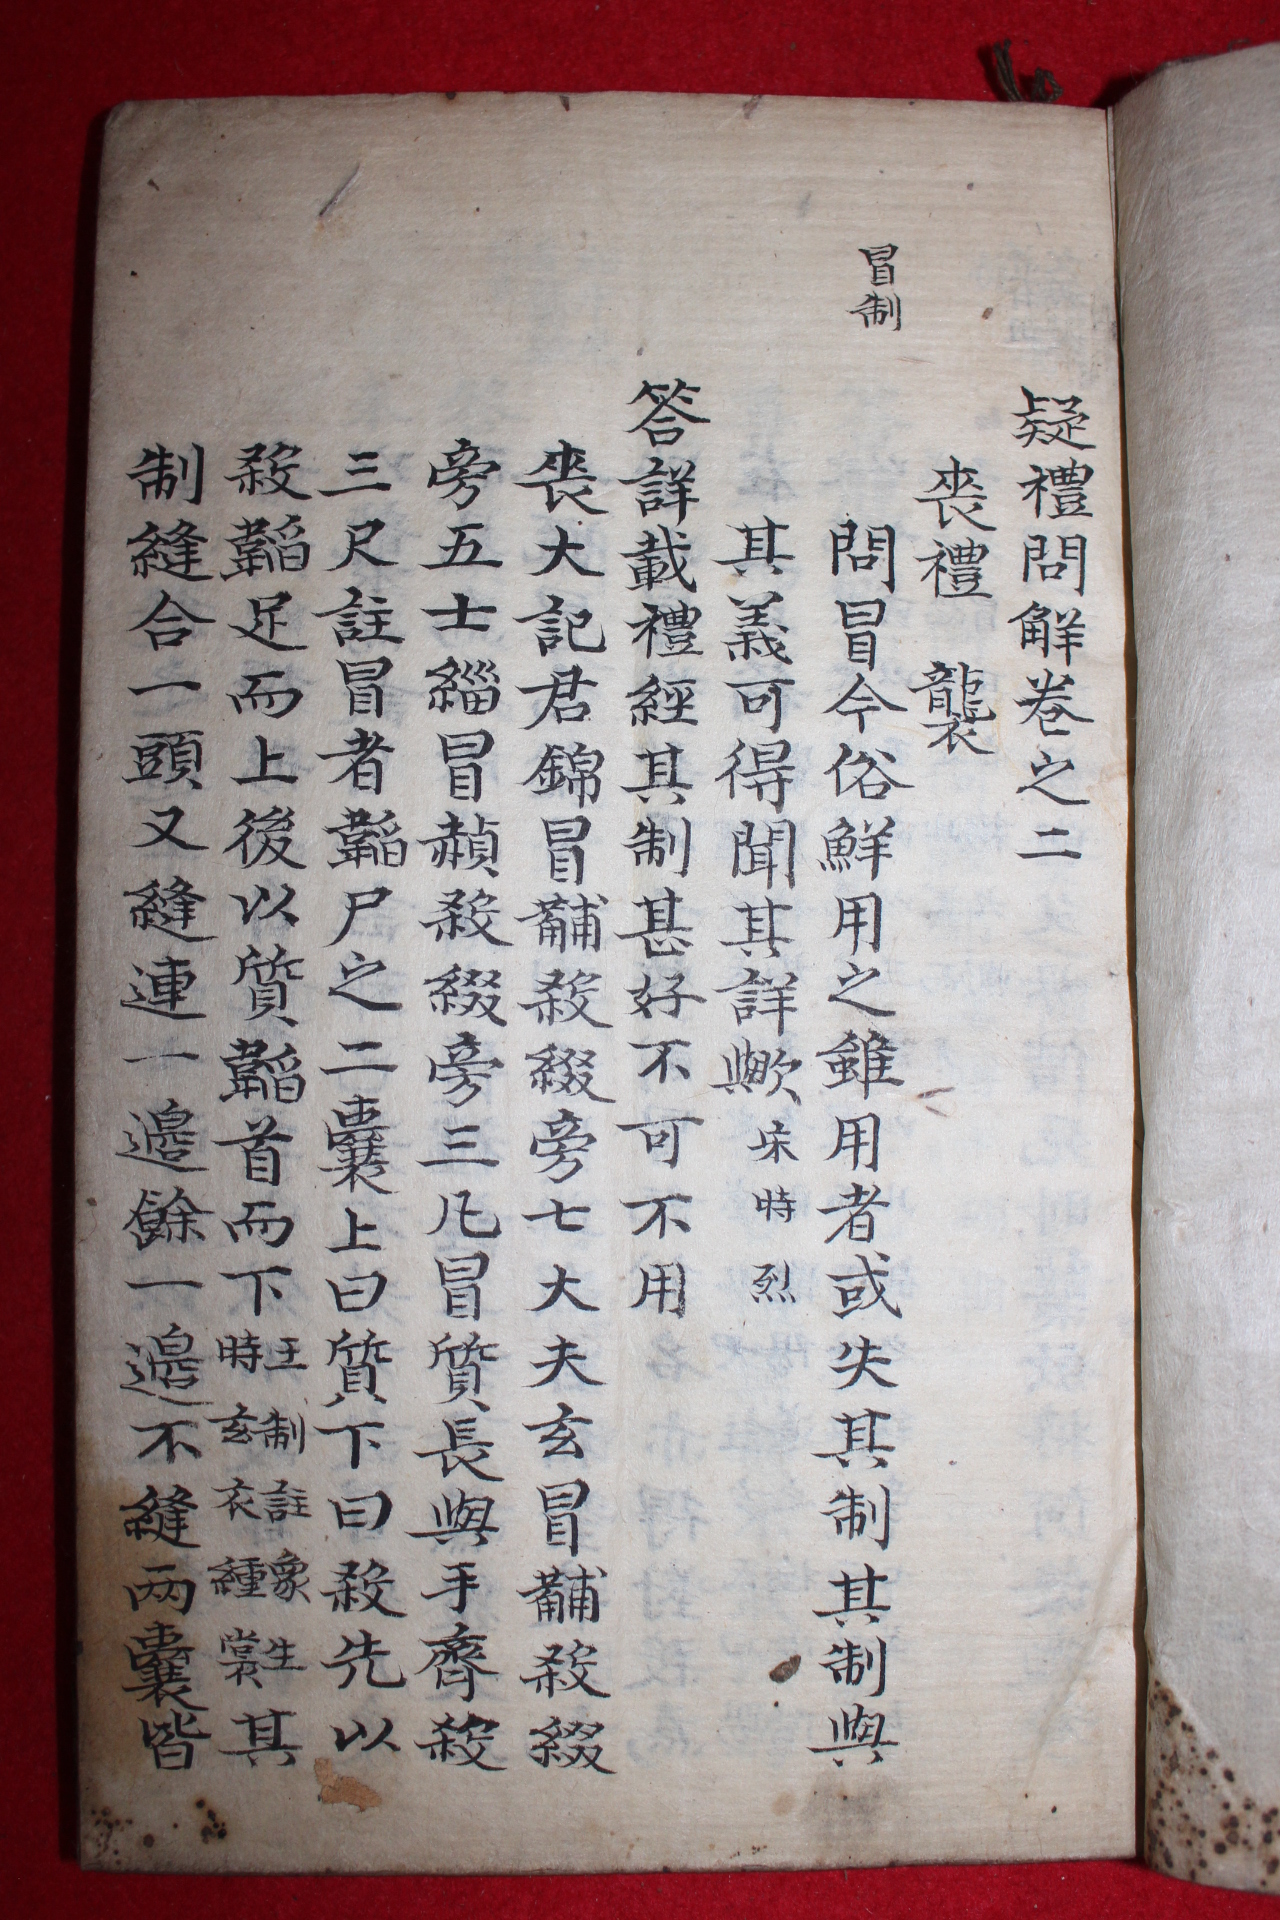 疑禮問解卷之二
喪禮 襲
冒制
問冒今俗鮮用之雖用者或失其制其制與
其義可得聞其詳歟宋時烈
答詳載禮經其制甚好不可不用
喪大記君錦冒黼殺綴旁七大夫玄冒黼殺綴
旁五士緇冒赬殺綴旁三凡冒質長與手齊殺
三尺註冒者韜尸之二囊上曰質下曰殺先以
殺韜足而上後以質韜首而下王制註象生時玄衣纁裳其
制縫合一頭又縫連一邊餘一邊不縫兩囊皆